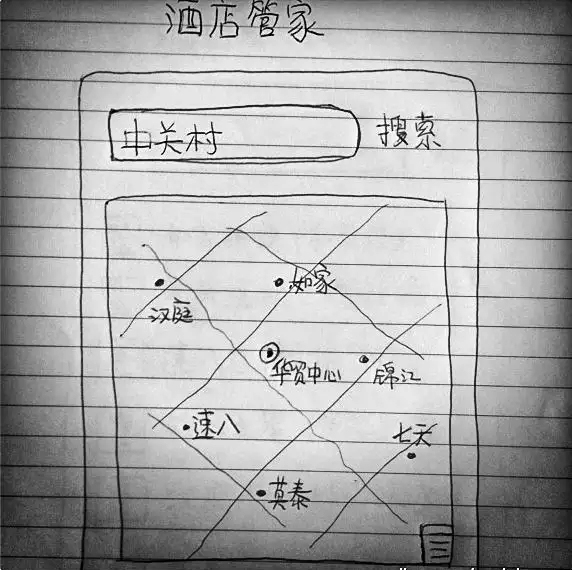 酒店管家
中关村 搜索
如家
汉庭
华贸中心
锦江
速八
七天
莫泰